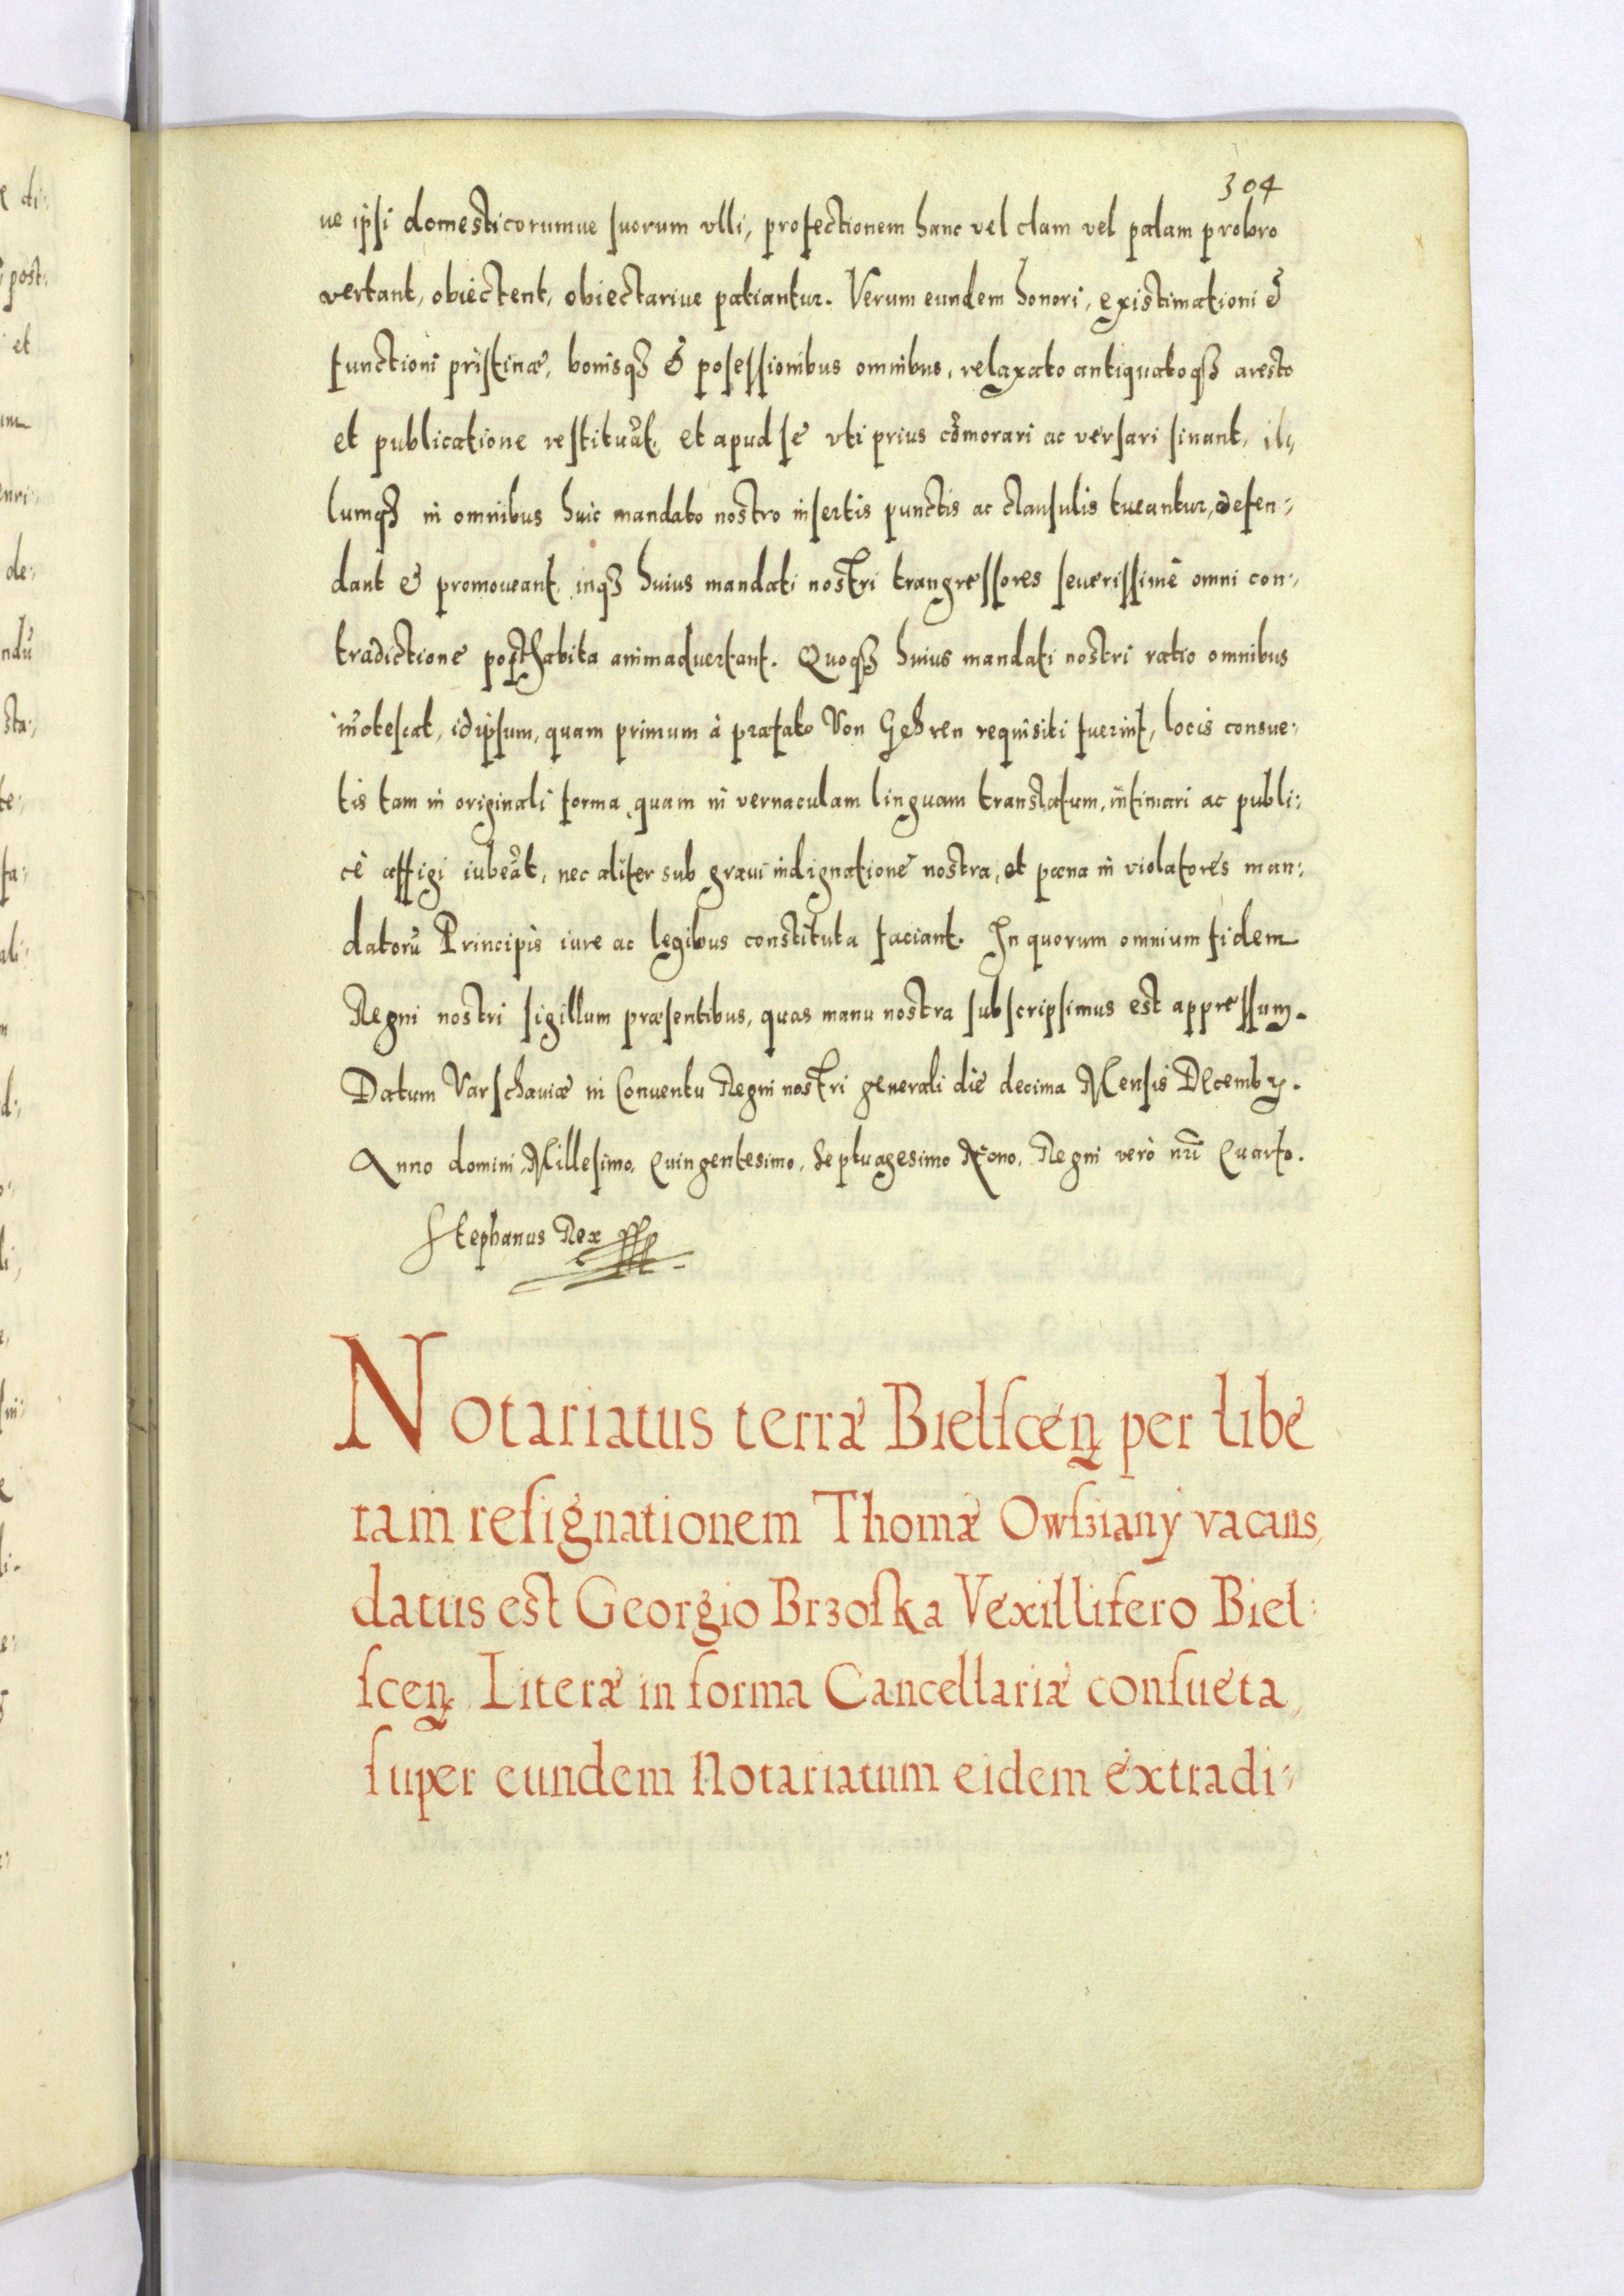 304
ue ipsi domesticorumue suorum vlli, profectionem hanc vel clam vel palam probro
vertant, obiectent, obiectariue patiantur. Verum eundem honori, existimationi &
functioni pristinæ, bonisqȝ & posessionibus omnibus, relaxato antiquatoqȝ aresto
et publicatione restituãt, et apud se vti prius cõmorari ac versari sinant, il,
lumqȝ in omnibus huic mandato nostro insertis punctis ac clausulis tueantur, defen:
dant & promoueant, inqȝ huius mandati nostri trangressores seuerissimè omni con:
tradictione posthabita animaduertant. Quoqȝ huius mandati nostri ratio omnibus
inotescat, id ipsum, quam primum à præfato Von Gehren requisiti fuerint, locis consue:
tis tam in originali forma quam in vernaculam linguam translatum, intimari ac publi:
cè affigi iubeãt, nec aliter sub graui indignatione nostra, et pœna in violatores man:
datorũ Principis iure ac legibus constituta faciant. In quorum omnium fidem
Regni nostri sigillum præsentibus, quas manu nostra subscripsimus est appressum.
Datum Varschauiæ in Conuentu Regni nostri generali die decima Mensis Decembr.
Anno domini Millesimo, Quingentesimo, Septuagesimo Nono, Regni verò nr̃i Quarto.
Stephanus Rex
Notariatus terræ Bielscen̄ per libe
ram resignationem Thomæ Owsziany vacans,
datus est Georgio Brzoska Vexillifero Biel:
scen̄ Literæ in forma Cancellariæ consueta,
super eundem Notariatum eidem extradi: